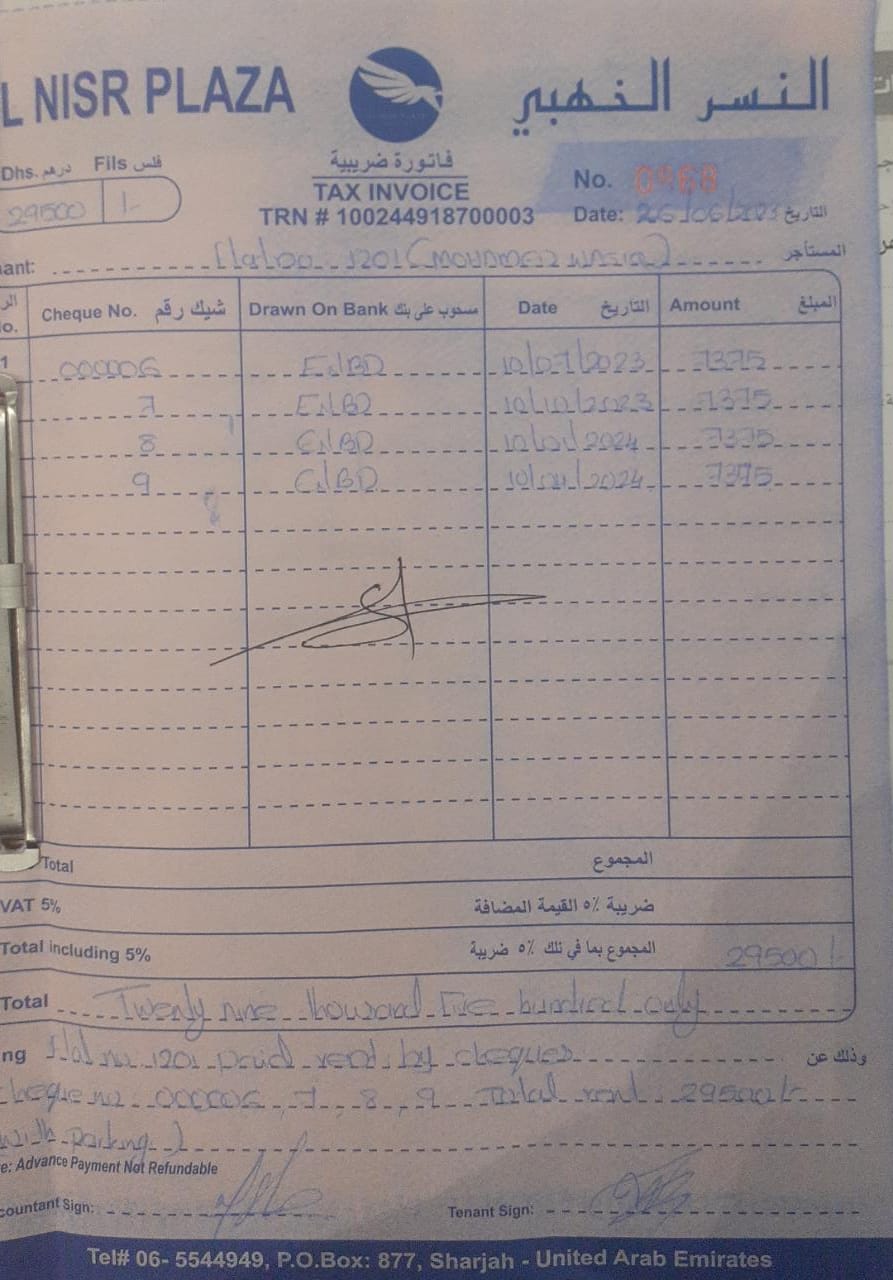 L NISR PLAZA
النسر الذهبي
Dhs. درهم Fils فلس
29500 /-
فاتورة ضريبية
TAX INVOICE
TRN # 100244918700003
No. 0968
Date: 26/06/2023 التاريخ
ant: 1201 (MOHAMED المستأجر
o. Cheque No. شيك رقم Drawn On Bank مسحوب على بنك Date التاريخ Amount المبلغ
1 000006 ENBD 10/07/2023 7375
7 ENBD 10/10/2023 7375
8 ENBD 10/01/2024 7375
9 ENBD 10/04/2024 7375
Total المجموع
VAT 5% ضريبة ٥٪ القيمة المضافة
Total including 5% المجموع بما في تلك ٥٪ ضريبة 29500/-
Total Twenty nine thousand Five hundred only
ng Flat no 1201 paid rent by cheques وذلك عن
cheque no 000006, 7, 8, 9 Total rent 29500/-
with parking )
e: Advance Payment Not Refundable
countant Sign: Tenant Sign:
Tel# 06- 5544949, P.O.Box: 877, Sharjah - United Arab Emirates